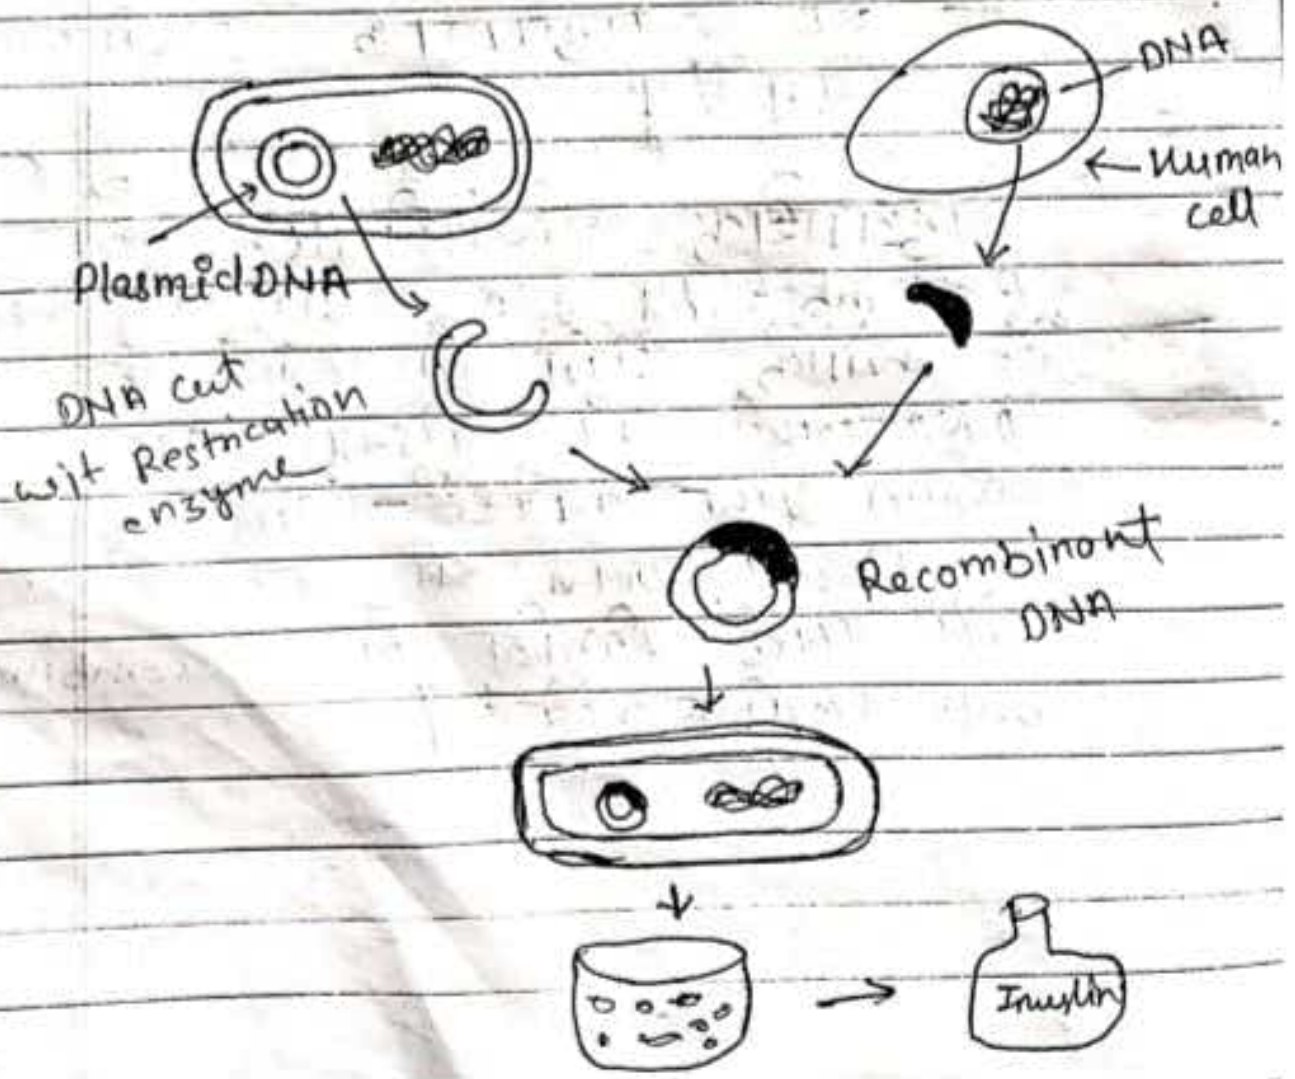 DNA
Human
cell
Plasmid DNA
DNA cut
wit Restrication
enzyme
Recombinant
DNA
Inuslin